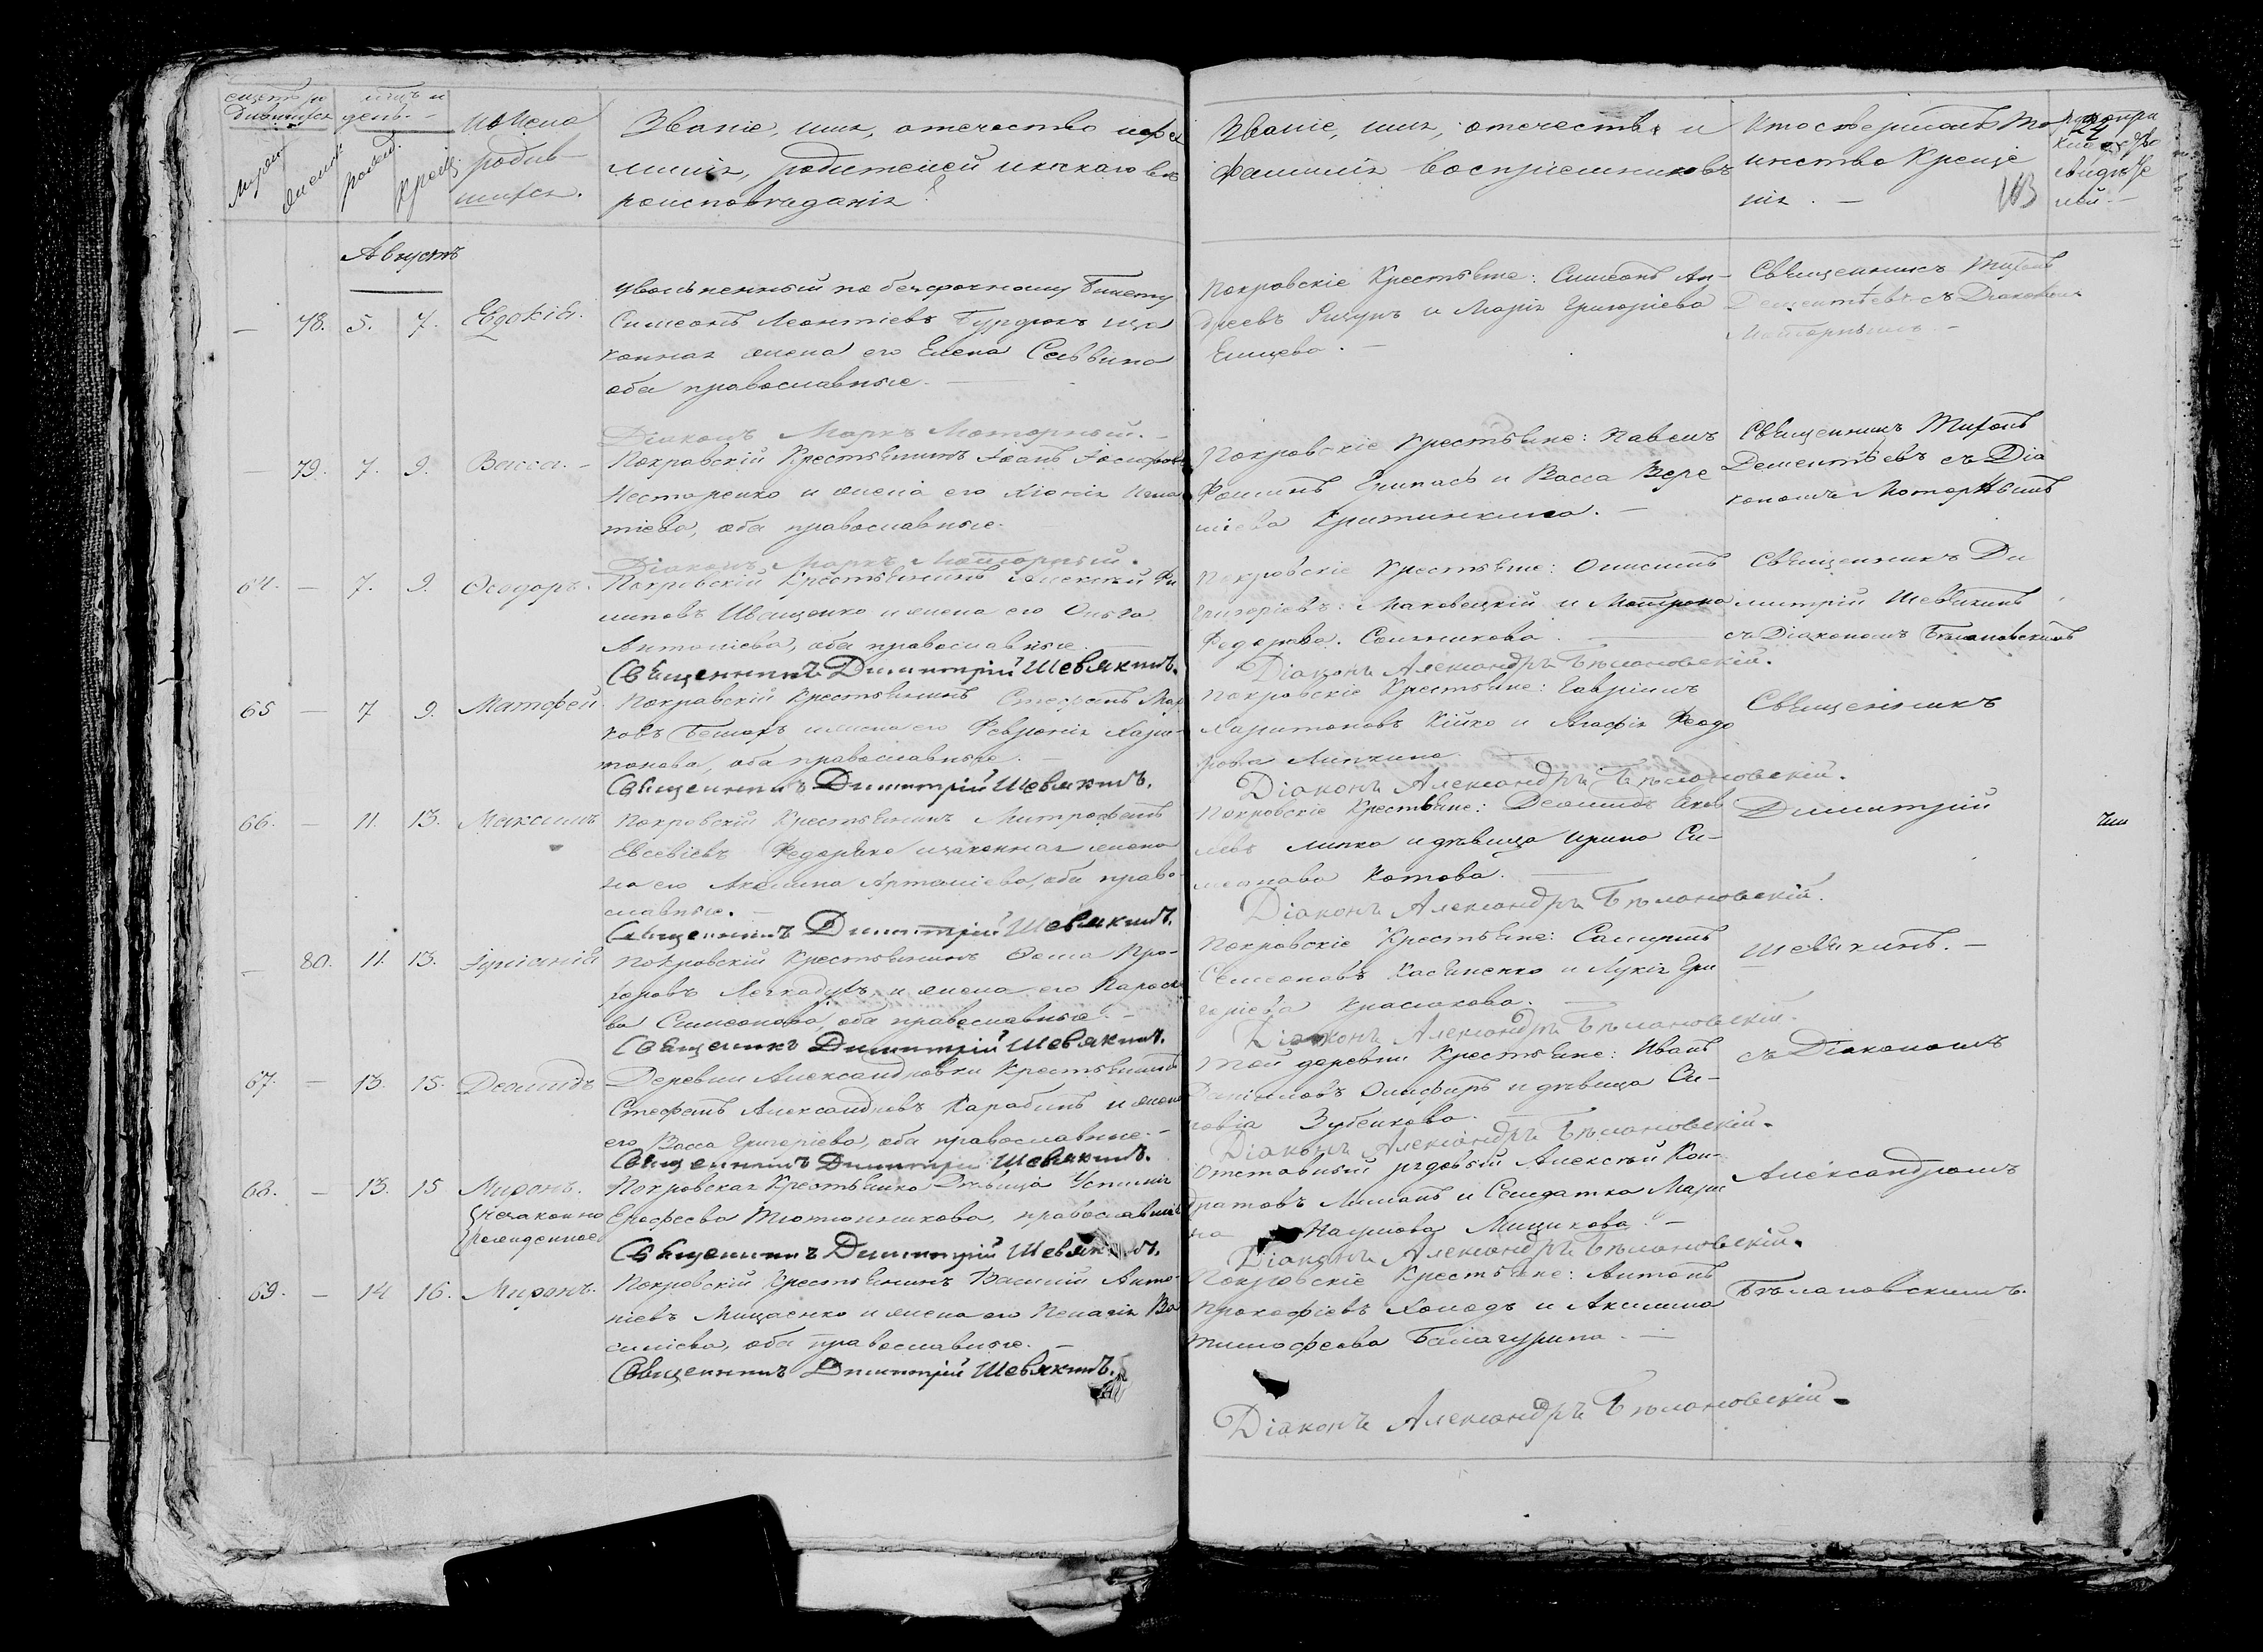 счетъ ро
дившихся
мцъ и
день.
Мужеск
Женск
рожд.
Крещ.
Имена
родив
шихся.
Званіе, имя, отечество и фа
милія, родителей и какаго вѣ
роисповѣданія
Августъ
— 78. 5. 7. Евдокія.
уволненный по безсрочному билету
Симеонъ Леонтіевъ Бурдюкъ и за
конная жена его Елена Саввина
оба православные. —
Діаконъ Маркъ Моторный. —
— 79. 7. 9. Васса. — Покровскій Крестьянинъ Іоанъ
Нестеренко и жена его Хіонія Игна
тіева, оба православные.
Діаконъ Маркъ Моторный.
64. — 7. 9. Ѳеодоръ. Покровскій Крестьянинъ Алексѣй Фи
липовъ Иващенко и жена его Ольга
Антоніева, оба православные.
Священникъ Димитрій Шевякинъ.
65 — 7 9. Матфей. Покровскій Крестьянинъ Стефанъ Мар
ковъ и жена его Февронія Хари-
тонова, оба православные. —
Священникъ Димитрій Шевякинъ.
66. — 11. 13. Максимъ Покровскій Крестьянинъ Митрофанъ
Евсевіевъ Федоряка и законная жена
на его Акилина Артеміева, оба право-
славные. —
Священникъ Димитрій Шевякинъ.
— 80. 11. 13. Іуліанія Покровскій Крестьянинъ Ѳома Про-
хоровъ и жена его Параске
ва Симеонова, оба православные. —
Священникъ Димитрій Шевякинъ.
67. — 13. 15. Деомидъ Деревни Александровки Крестьянинъ
Стефанъ Александровъ Карабинъ и жена
его Васса Григоріева, оба православные. —
Священникъ Димитрій Шевякинъ.
68. — 13. 15 Миронъ. Покровская Крестьянка Дѣвица Устинія
незаконно
рожденное
Ерофеева Тютюнникова, православная
Священникъ Димитрій Шевякинъ.
69. — 14 16. Миронъ. Покровскій Крестьянинъ Василій Анто-
ніевъ Мищенко и жена его Пелагія Ва
силіева, оба православные. —
Священникъ Димитрій Шевякинъ.
Званіе, имя, отечество и
Фамилія воспріемниковъ
Кто совершалъ Та
инство Креще
нія. —
103
24
Покровскіе Крестьяне: Симеонъ Ан-
дреевъ и Марія Григоріева
Емцева. —
Священникъ Тихонъ
Дементьевъ съ Діакономъ
Моторнымъ. —
Покровскіе Крестьяне: Павелъ
Фоминъ и Васса
Критинкина. —
Священникъ Тихонъ
Дементьевъ съ Діа
кономъ Моторнымъ
Покровскіе Крестьяне: Онисимъ
Григоріевъ Маковецкій и Матрона
Федорова. Сальникова. —
Діаконъ Александръ Бѣлановскій.
Священникъ Ди
митрій Шевякинъ
съ Діакономъ Бѣлановскимъ
Покровскіе Крестьяне: Гавріилъ
Харитоновъ Кійко и Агафія Феодо
рова Липкина. —
Діаконъ Александръ Бѣлановскій.
Священникъ
Покровскіе Крестьяне: Деомидъ Яков
левъ Липка и дѣвица Ирина Си-
меонова Котова. —
Діаконъ Александръ Бѣлановскій.
Димитрій
Покровскіе Крестьяне: Самуилъ
Симеоновъ Касьяненко и Лукія Гри
горіева Краснокова. —
Діаконъ Александръ Бѣлановскій.
Шевякинъ. —
Той деревни Крестьяне: Иванъ
Даніиловъ Онисфиръ и дѣвица Си-
Зубенкова.
Діаконъ Александръ Бѣлановскій.
съ Діакономъ
Отставный рядовый Алексѣй Кон-
дратовъ Лиманъ и Солдатка Мари
на Наумова Мищикова. —
Діаконъ Александръ Бѣлановскій.
Александромъ
Покровскіе Крестьяне: Антонъ
Прокофіевъ Холодъ и Акилина
Тимофеева Балагурина. —
Бѣлановскимъ.
Діаконъ Александръ Бѣлановскій.